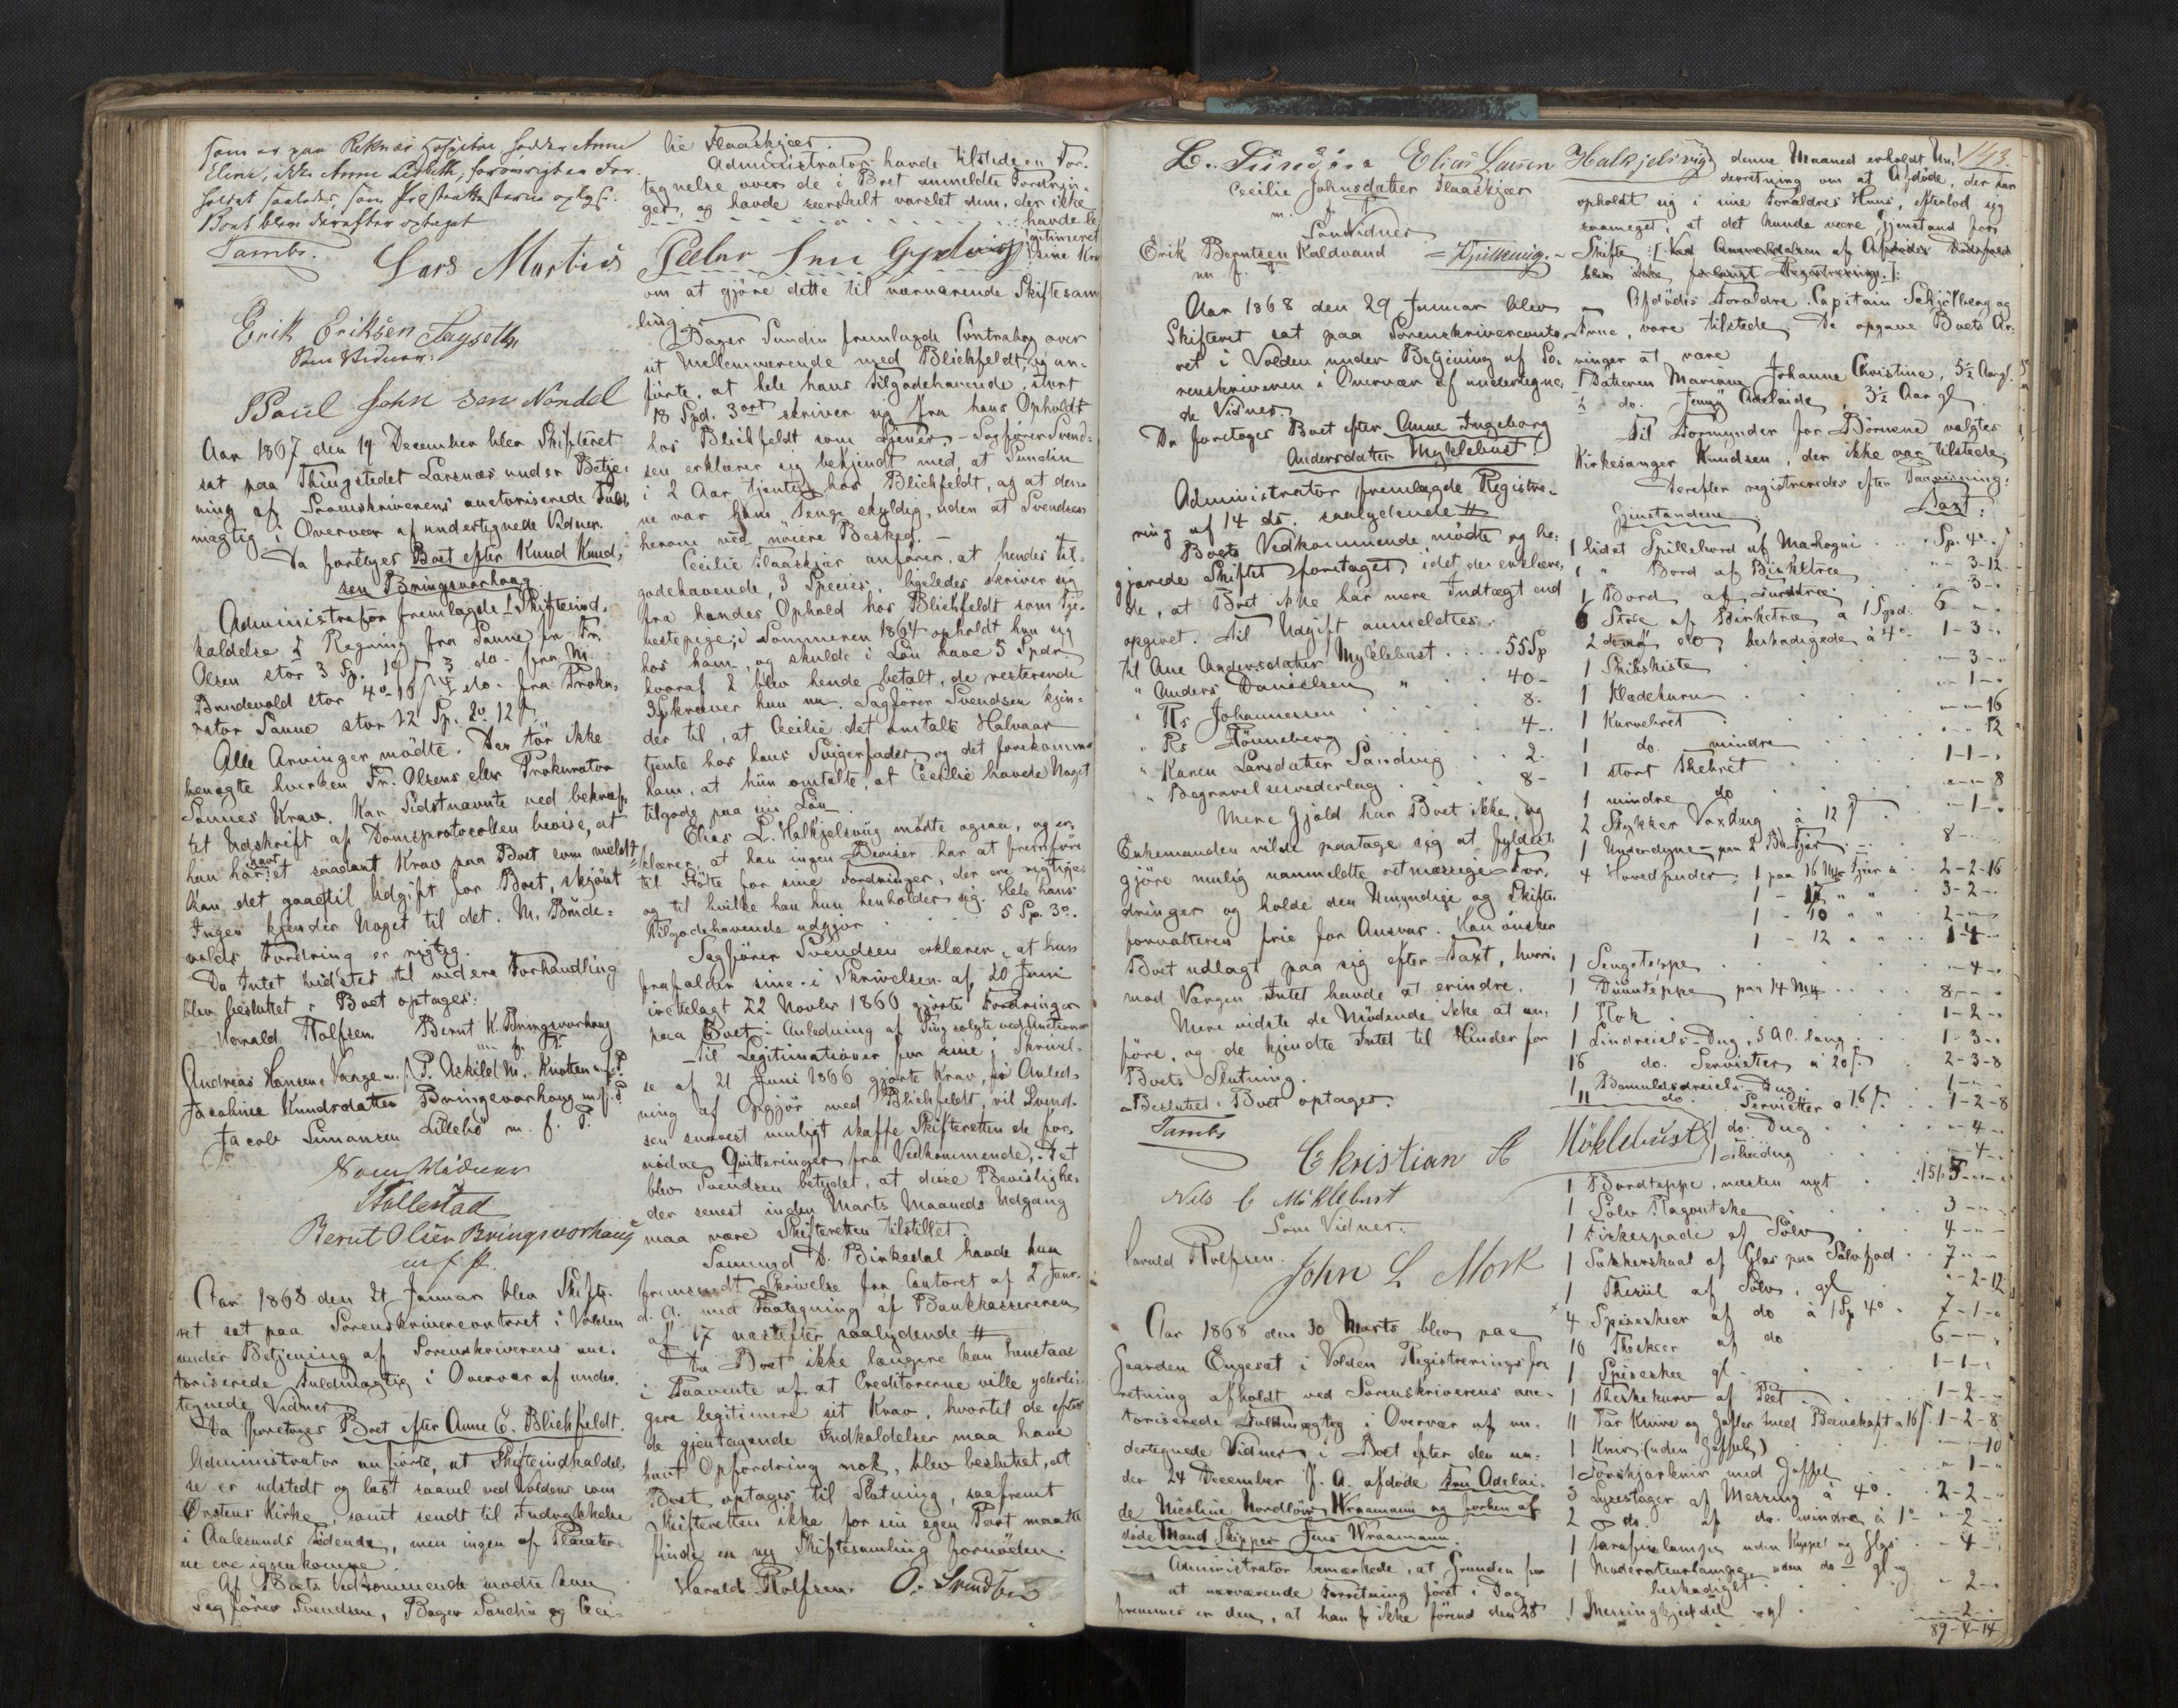 som er paa Reknæs Hospital, hedder Anne
Eline, ikke Anne Lisbeth, forøvrigt er For-
holdet saaledes, som
Boet blev derefter optaget
Jambs.
Lars Martin
Erik Eriksen
Som Vidner:
Paul Johnsen Nordal
Aar 1867 den 19 December blev Skifteret
sat paa Thingstedet Larsnæs under Betje-
ning af Sorenskriverens auctoriserede Fuld-
mægtig i Overvær af undertegnede Vidner.
Da foretoges Boet efter Knud Knud-
sen Bringsvorhaug
Administrator fremlagde 1 Skifteind-
kaldelse 2 Regning fra Sanne fr. Fr.
Olsen stor 3 Sp. 3 do. fra M.
Brudevold stor 4 do. fra Proku-
rator Sanne stor 12 Sp. 2 12
Alle Arvinger mødte. Der tør ikke
benægte hverken Fr. Olsens eller Prokurator
Sannes Krav. Kan Sidstnævnte ved bekræf-
tet Udskrift af Domsprotocollen bevise, at
han har havt et saadant Krav paa Boet som meldt,
kan det gaae til Udgift for Boet, skjønt
Ingen kjender Noget til det. M. Brude-
volds Fordring er rigtig.
Da Intet vidstes til videre Forhandling
blev besluttet: Boet optages:
Harald Rolfsen. Bernt K. Bringsvorhaug
m. f. P.
Andreas Hansen Vange m. f. P. Askild N. Knotten m. f. P.
Jacobine Knudsdatter Bringsvorhaug m. f. P.
Jacob Simonsen Lillebø m. f. P.
Som Vidner
Hallestad
Bernt Olsen Bringsvorhaug
m. f. P.
Aar 1868 den 21 Januar blev Skifte-
ret sat paa Sorenskrivercontoret i Volden
under Betjening af Sorenskriverens auc-
toriserede Fuldmægtig i Overvær af under-
tegnede Vidner
Da foretoges Boet efter Anne E. Blichfeldt.
Administrator anførte, at Skifteindkaldel-
se er udstedt og læst saavel ved Voldens som
Ørstens Kirke, samt sendt til Indrykkelse
i Aalesunds Tidende, men ingen af Placater-
ne ere igjenkomne
Af Boets Vedkommende mødte kun
Sagfører Svendsen, Bager Sundin og Ceci-
lie Flaaskjær.
Administrator havde tilstede en For-
tegnelse over de i Boet anmeldte Fordrin-
ger, og havde særskilt varslet dem, der ikke
havde le-
gitimeret
sine Krav
om at gjøre dette til nærværende Skiftesam-
ling.
Bager Sundin fremlagde Contrabog over
sit Mellemværende med Blichfeldt, og an-
førte, at hele hans Tilgodehavende, stort
18 Spd. 3 ort skriver sig fra hans Ophold
hos Blichfeldt som Tjener. – Sagfører Svend-
sen erklærer sig bekjendt med, at Sundin
i 2 Aar tjente hos Blichfeldt, og at den-
ne var ham Penge skyldig, uden at Svendsen
herom ved nøiere Besked. –
Cecilie Flaaskjær anfører, at hendes Til-
godehavende, 3 Species, ligeledes skriver sig
fra hendes Ophold hos Blichfeldt som Tje-
nestepige; i Sommeren 1864 opholdt hun sig
hos ham, og skulde i Løn have 5 Spdr.
hvoraf 2 blev hende betalt, de resterende
3 kræver hun nu. Sagfører Svendsen kjen-
der til, at Cecilie det omtalte Halvaar
tjente hos hans Svigerfader og det forekommer
ham, at hun omtalte, at Cecilie havde Noget
tilgode paa sin Løn.
Elias L. Halkjelsvig mødte ogsaa, og er-
klærer, at han ingen Beviser har at fremføre
til Støtte for sine Fordringer, der ere rigtige,
og til hvilke han kun henholder sig. Hele hans
Tilgodehavende udgjør 5 Sp. 3 o.
Sagfører Svendsen erklærer, at han
frafalder sine i Skrivelsen af 20 Juni
indelagt 22 Novbr 1860 gjorte Fordringer
paa Boet i Anledning af Ting solgte ved Auctionen
Til Legitimationer for sine i Skrivel-
se af 21 Juni 1866 gjorte Krav, i Anled-
ning af Opgjør med Blichfeldt, vil Svend-
sen snarest muligt skaffe Skifteretten de for-
nødne Quitteringer fra Vedkommende. Det
blev Svendsen betydet, at disse Bevislighe-
der senest inden Marts Maaneds Udgang
maa være Skifteretten tilstillet.
Samund D. Birkedal havde kun
fremsendt Skrivelse fra Contoret af 2 Janr.
d. A. med Paategning af Bankkassereren
af 17 næstefter saalydende #
Da Boet ikke længere kan henstaae
i Paavente af at Creditorerne ville yderli-
gere legitimere sit Krav, hvortil de efter
de gjentagende Indkaldelser maa have
havt Opfordring nok, blev besluttet, at
Boet optages til Slutning, saafremt
Skifteretten ikke for sin egen Part maatte
finde en ny Skiftesamling fornøden.
Harald Rolfsen. O. Svendsen
L. Sundin Elias Larsen Halkjelsvig
Cecilie Johnsdatter Flaaskjær
m. f. P.
Som Vidner
Erik Berntsen Kaldvand
m. f. P.
Aar 1868 den 29 Januar blev
Skifteret sat paa Sorenskrivercontor-
ret i Volden under Betjening af So-
renskriveren i Overvær af undertegne-
de Vidner.
Da foretoges Boet efter Anne Ingeborg
Andersdatter Myklebust.
Administrator fremlagde Registre-
ring af 14 ds. saalydende #
Boets Vedkommende mødte og be-
gjærede Skiftet foretaget, idet de erklære-
de, at Boet ikke har mere Indtægt end
opgivet. Til Udgift anmeldtes:
til Ane Andersdatter Myklebust 55 Sp
" Anders Danielsen " 40 -
" Rs Johannessen 8 -
" Rs Tønneberg 4 -
" Karen Larsdatter Sandvig 2 -
" Begravelsesvederlag 8 -
Mere Gjæld har Boet ikke, og
Enkemanden vilde paatage sig at fyldest-
gjøre mulig uanmeldte retmæssige For-
dringer og holde den Umyndige og Skifte-
forvalteren frie for Ansvar. Han ønsker
Boet udlagt paa sig efter Taxt, hvori-
mod Værgen Intet havde at erindre.
Mere vidste de Mødende ikke at an-
føre, og de kjendte Intet til Hinder for
Boets Slutning.
Besluttet: Boet optages.
Jambs
Christian A Møklebust
Nils C Møklebust
Som Vidner.
Harald Rolfsen.
John L Mork
Aar 1868 den 30 Marts blev paa
Gaarden Engeset i Volden Registreringsfor-
retning afholdt ved Sorenskriverens auc-
toriserede Fuldmægtig i Overvær af un-
dertegnede Vidner i Boet efter den un-
der 24 December f. A. afdøde Fru Adelai-
de Nicoline Nordlöw Wraamann og forhen af-
døde Mand Skipper Jens Wraamann.
Administrator bemærkede, at Grunden for
at nærværende Forretning først i Dag
fremmes er den, at han ikke førend den 28
143.
denne Maaned erholdt Un-
derretning om at Afdøde, der har
opholdt sig i sine Forældres Huus, efterlod sig
saameget, at det kunde være Gjenstand for
Skifte :[ Ved Anmeldelsen af Afdødes Dødsfald
blev ikke forlangt Registrering. ]:
Afdødes Forældre Capitain Schjølberg og
Frue, vare tilstede. De opgave Boets Ar-
vinger at være
1 Datteren Mariane Johanne Christine, 5½ Aar gl.
2 do. Jenny Adelaide, 3½ Aar gl.
Til Formynder for Børnene valgtes
Kirkesanger Knudsen, der ikke var tilstede
Derefter registreredes efter Paavisning:
Gjenstandene Taxt:
1 lidet Spillebord af Mahogni Sp. 4 -
1 " Bord af Birketræ - 3-12
1 Bord af - 3 -
6 Stole af Birketræ a 1 Spd. 6 - -
2 do. beskadigede à 4 o 1-3 -
1 Skibskiste - 3 -
1 Klædekurv - 1 -
1 Kurvebret - - 16
1 do. mindre - - 12
1 stort Thebret 1-1 -
1 mindre do - - 8
2 Stykker Voxdug à 12 - 1 -
1 Underdyne - paa 2 B. Fjær 8 -
4 Hovedpuder, 1 paa 16 Mrk Fjær a 2-2-16
1 - 12 " " 3-2 -
1 - 10 " " 2 - -
1 - 12 " " 1-4 -
1 Sengeteppe - 4 -
1 Duunteppe paa 14 Mrk 8 - -
1 1-2 -
1 Lindreiels-Dug, 5 Al. lang 1-3 -
16 do. Servietter a 20 2-3-8
1 Bomuldsdreiels-Dug 1 - -
11 do. Servietter a 16 1-2-8
1 do. Dug - 4 -
1 Thedug - 4 -
1 Bordteppe, næsten nyt 5 - -
1 Sølv Ragoutske 3 - -
1 Fiskespade af Sølv 4 - -
1 Sukkerskaal af Glas paa Sølvfod 7 - -
1 Thesiil af Sølv, gl - 2-12
4 Spiseskeer af do à 1 Sp 4 o 7-1 -
10 Theskeer af do 6 - -
1 Spiseskee gl - 1-1 -
1 Theskekurv af Plet 1-2 -
11 Par Knive og Gafler med Beenskaft a 16 1-2-8
1 Kniv (uden Gaffel) - - 10
1 Forskjærkniv med Gaffel - 1 -
3 Lysestager af Messing à 4 o 2-2 -
2 do. af do. mindre à 1 o - 2 -
1 Parafinlampe uden Kuppel og Glas - 4 -
1 Moderateurlampe uden do - gl og
beskadiget - 2 -
1 Messingkjeddel gl - 2 -
89-4-14